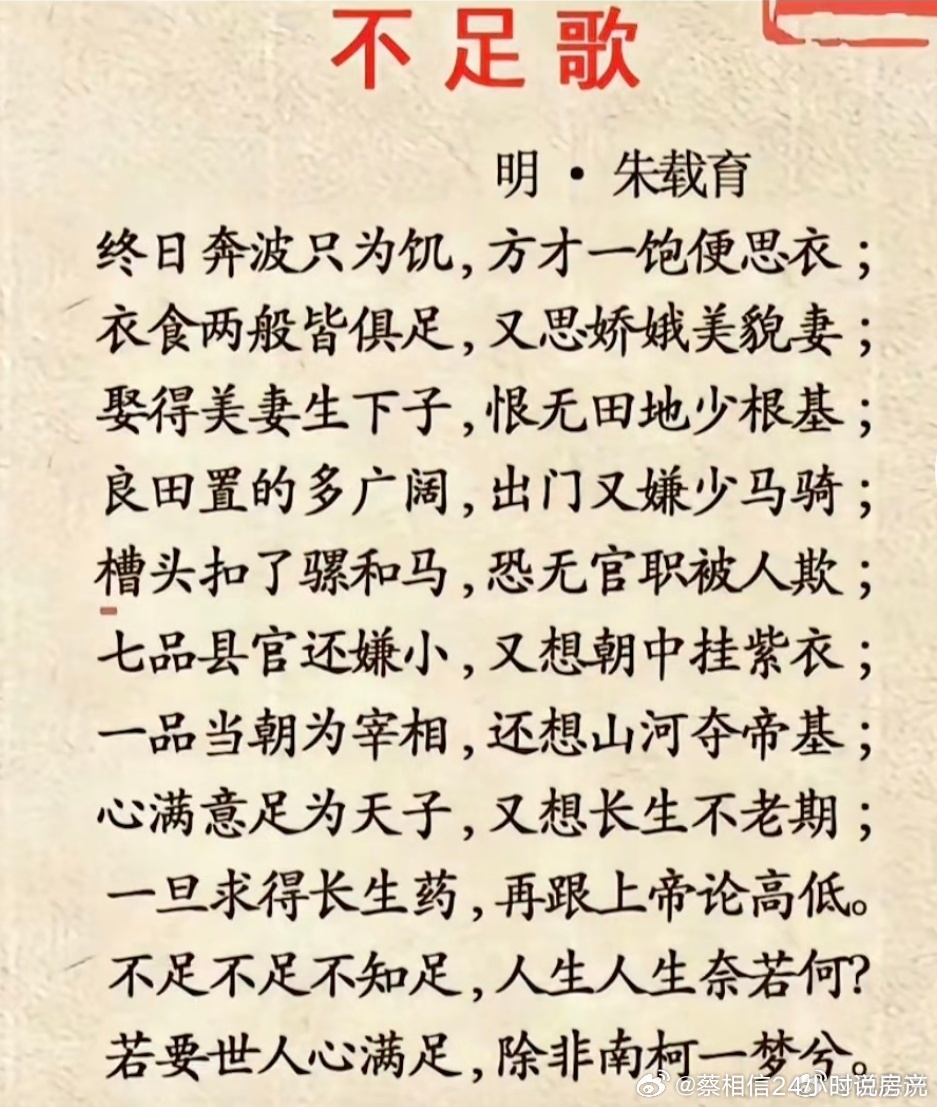 不足歌
明·朱载育
终日奔波只为饥,方才一饱便思衣;
衣食两般皆俱足,又思娇娥美貌妻;
娶得美妻生下子,恨无田地少根基;
良田置的多广阔,出门又嫌少马骑;
槽头扣了骡和马,恐无官职被人欺;
七品县官还嫌小,又想朝中挂紫衣;
一品当朝为宰相,还想山河夺帝基;
心满意足为天子,又想长生不老期;
一旦求得长生药,再跟上帝论高低。
不足不足不知足,人生人生奈若何?
若要世人心满足,除非南柯一梦兮。
@蔡相信24小时说房